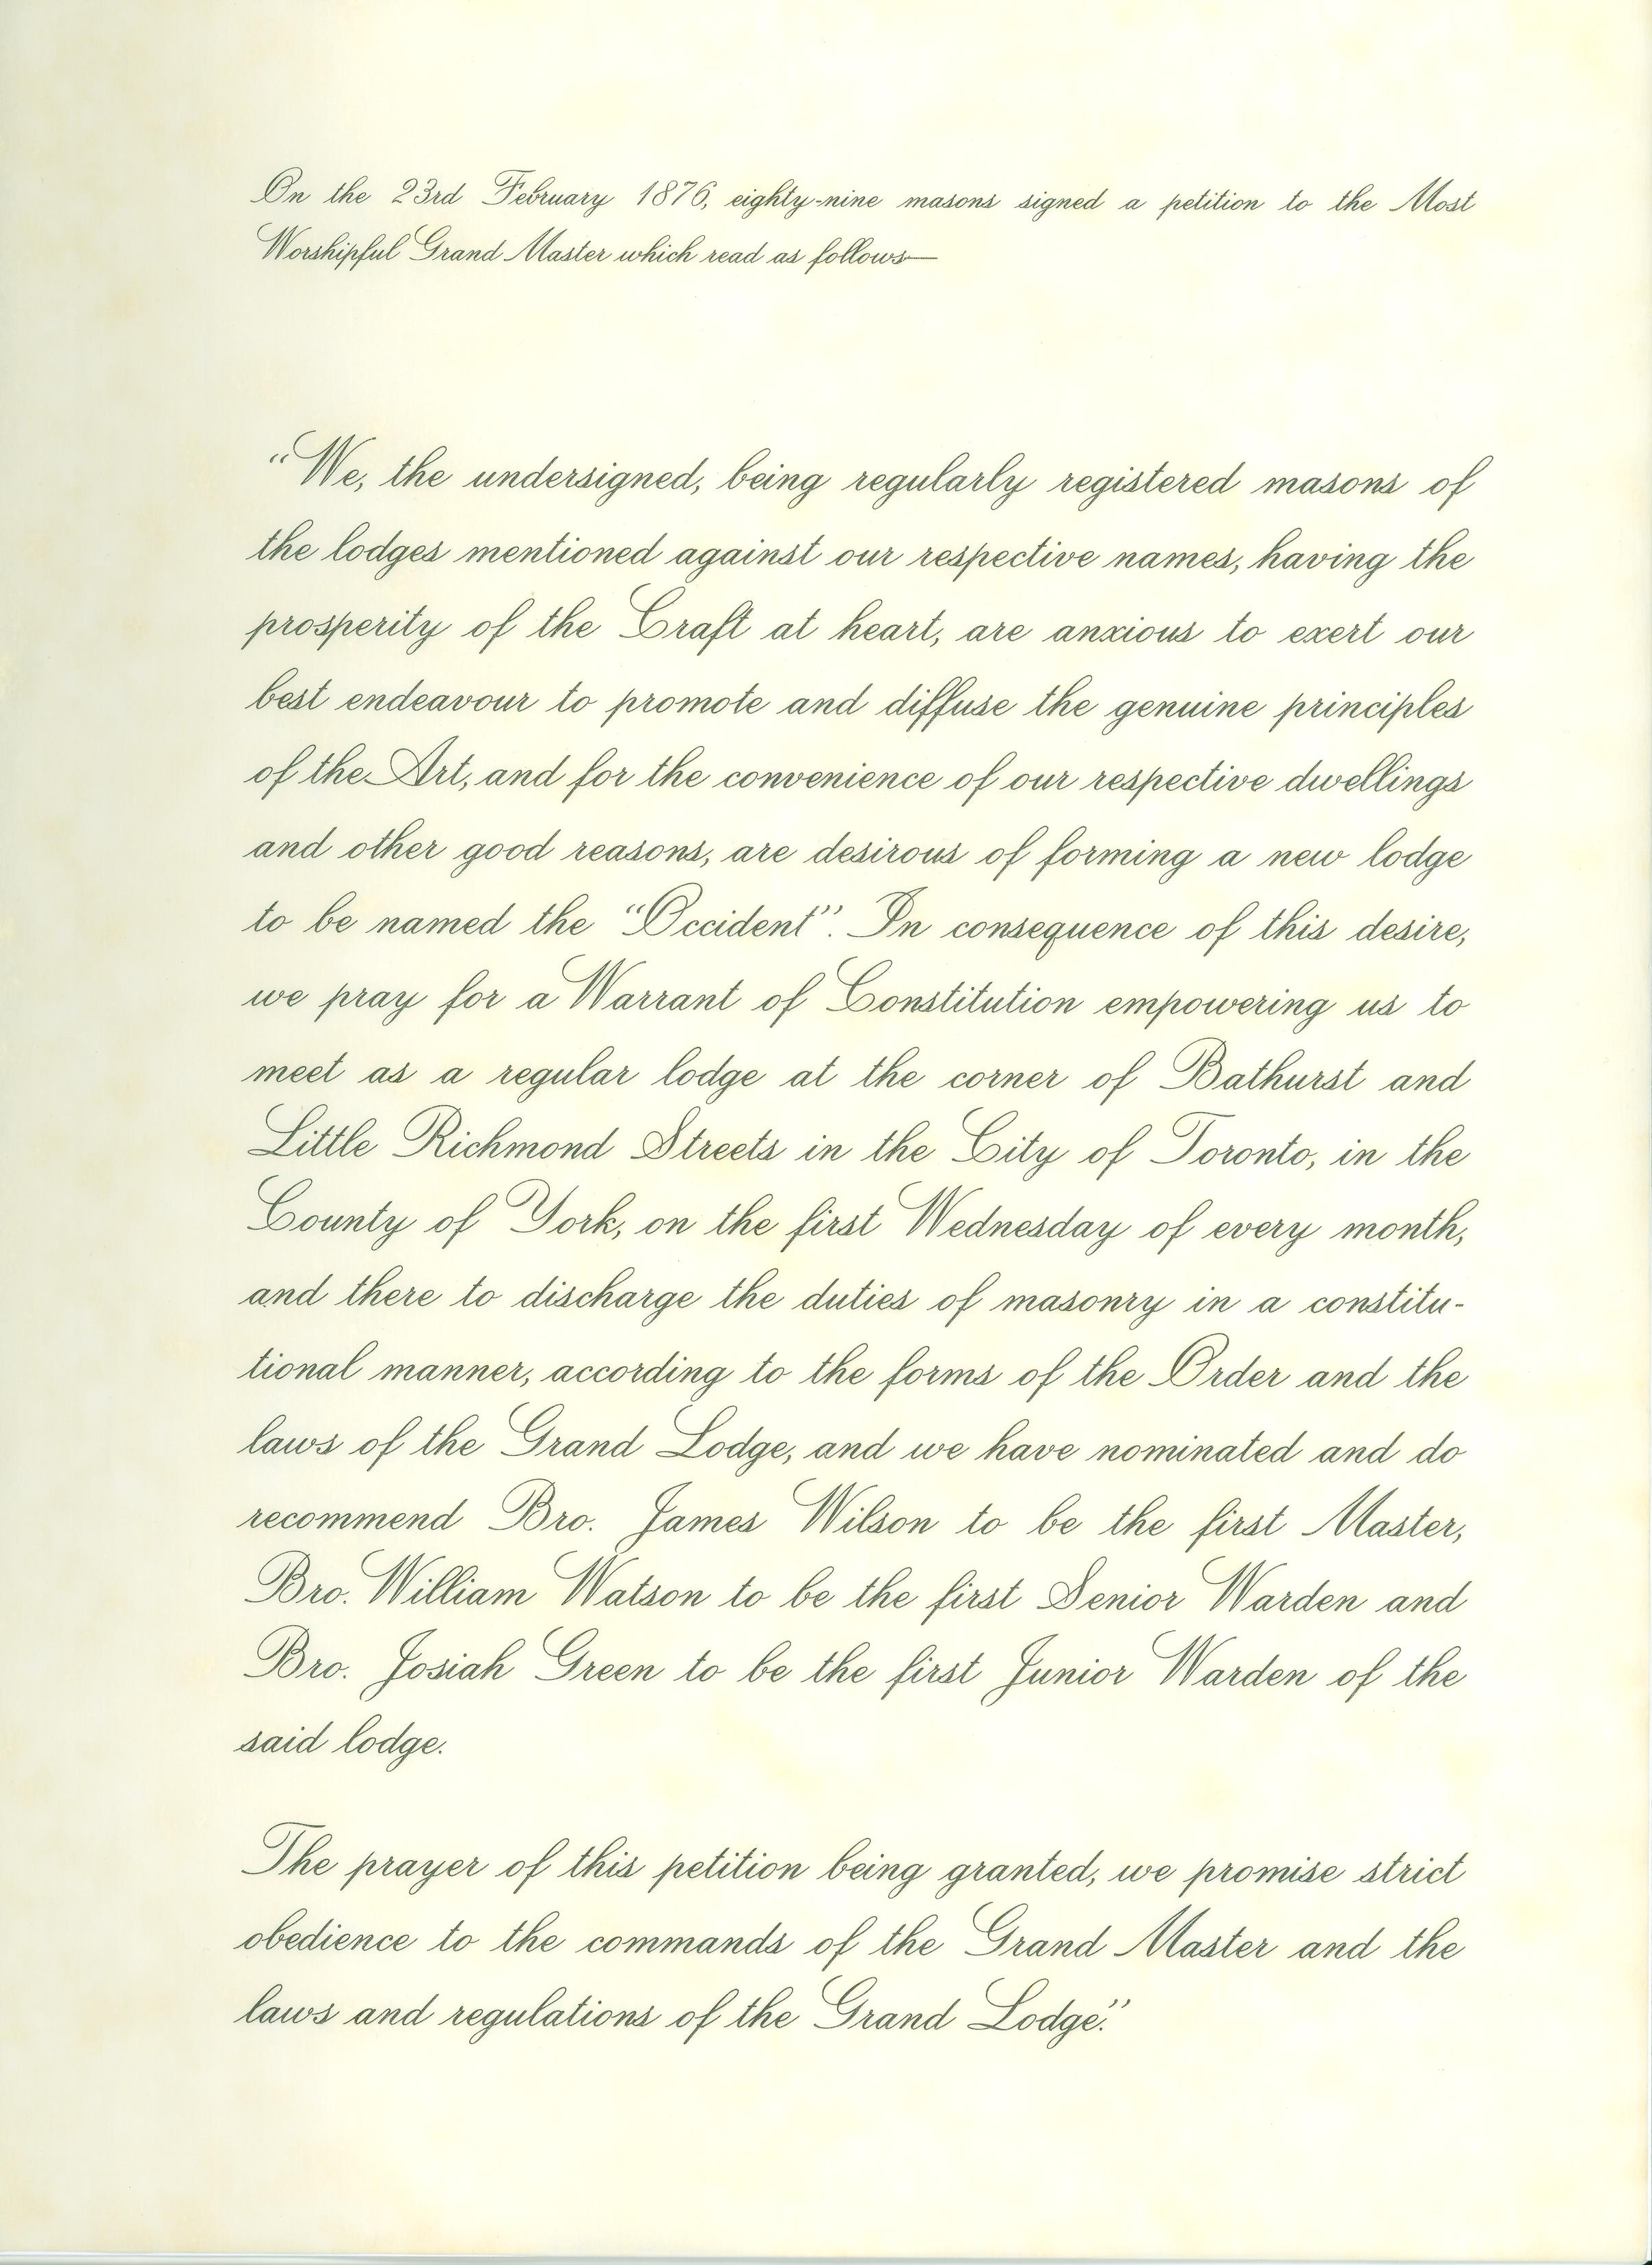 On the 23rd February 1876, eighty-nine masons signed a petition to the Most
Worshipful Grand Master which read as follows—
“We, the undersigned, being regularly registered masons of
the lodges mentioned against our respective names, having the
prosperity of the Craft at heart, are anxious to exert our
best endeavour to promote and diffuse the genuine principles
of the Art, and for the convenience of our respective dwellings
and other good reasons, are desirous of forming a new lodge
to be named the “Occident”. In consequence of this desire,
we pray for a Warrant of Constitution empowering us to
meet as a regular lodge at the corner of Bathurst and
Little Richmond Streets in the City of Toronto, in the
County of York, on the first Wednesday of every month,
and there to discharge the duties of masonry in a constitu-
tional manner, according to the forms of the Order and the
laws of the Grand Lodge, and we have nominated and do
recommend Bro. James Wilson to be the first Master,
Bro. William Watson to be the first Senior Warden and
Bro. Josiah Green to be the first Junior Warden of the
said lodge.
The prayer of this petition being granted, we promise strict
obedience to the commands of the Grand Master and the
laws and regulations of the Grand Lodge.”